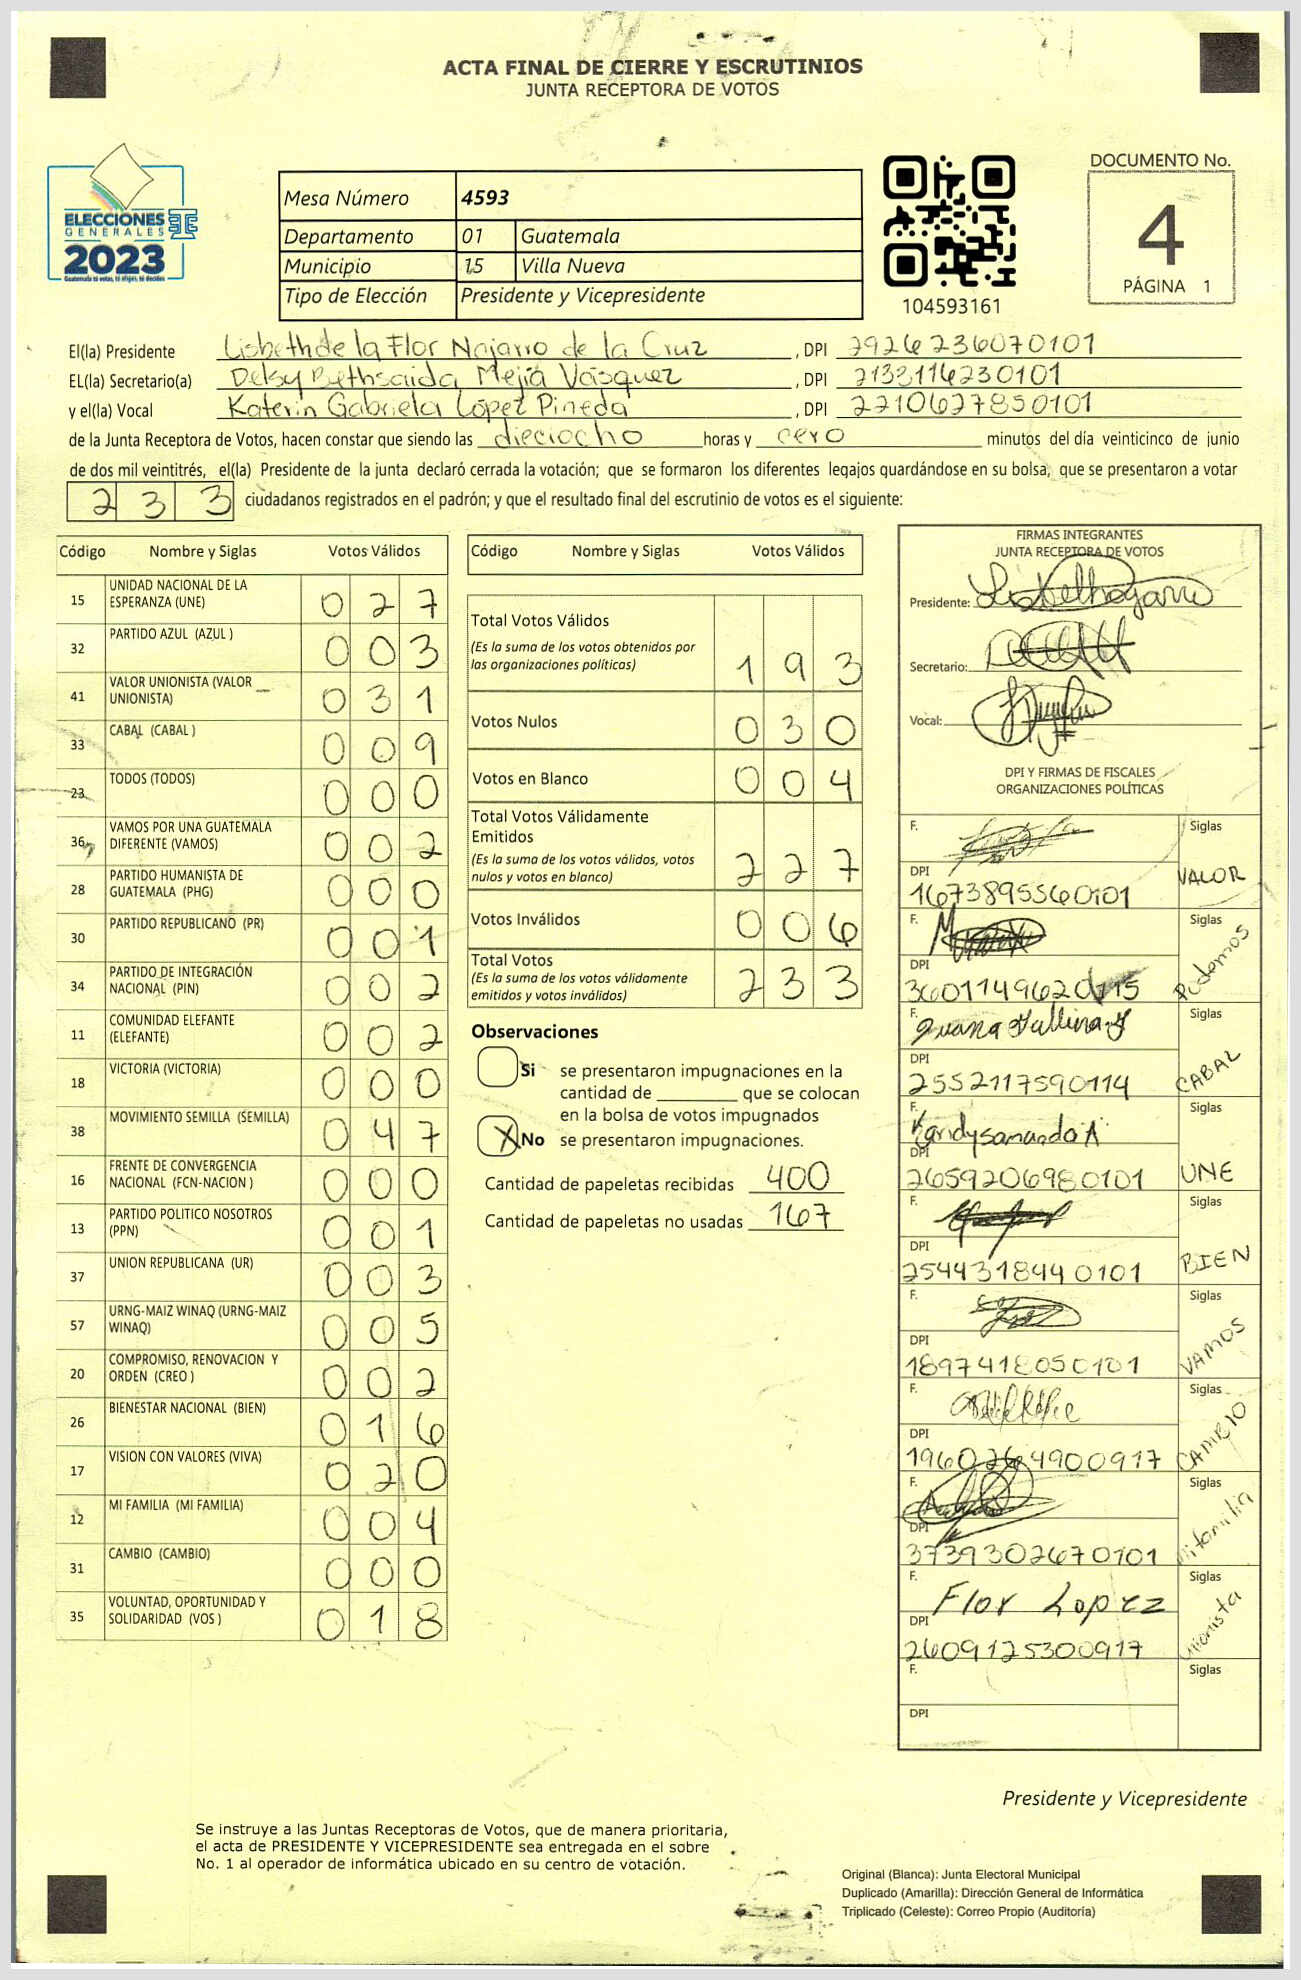 ACTA FINAL DE CIERRE Y ESCRUTINIOS
JUNTA RECEPTORA DE VOTOS
ELECCIONES
GENERALES
2023
Guatemala tú votas, tú eliges, tú decides
Mesa Número 4593
Departamento 01 Guatemala
Municipio 15 Villa Nueva
Tipo de Elección Presidente y Vicepresidente
104593161
DOCUMENTO No.
4
PÁGINA 1
El(la) Presidente Lisbeth de la Flor Najarro de la Cruz, DPI 2926236070101
EL(la) Secretario(a) Delsy Bethsaida Mejía Vásquez, DPI 2133116230101
y el(la) Vocal Katerin Gabriela López Pineda, DPI 2210627850101
de la Junta Receptora de Votos, hacen constar que siendo las dieciocho horas y cero minutos del día veinticinco de junio
de dos mil veintitrés, el(la) Presidente de la junta declaró cerrada la votación; que se formaron los diferentes legajos quardándose en su bolsa, que se presentaron a votar
233 ciudadanos registrados en el padrón; y que el resultado final del escrutinio de votos es el siguiente:
Código Nombre y Siglas Votos Válidos
15 UNIDAD NACIONAL DE LA ESPERANZA (UNE) 027
32 PARTIDO AZUL (AZUL ) 003
41 VALOR UNIONISTA (VALOR UNIONISTA) 031
33 CABAL (CABAL ) 009
23 TODOS (TODOS) 000
36 VAMOS POR UNA GUATEMALA DIFERENTE (VAMOS) 002
28 PARTIDO HUMANISTA DE GUATEMALA (PHG) 000
30 PARTIDO REPUBLICANO (PR) 001
34 PARTIDO DE INTEGRACIÓN NACIONAL (PIN) 002
11 COMUNIDAD ELEFANTE (ELEFANTE) 002
18 VICTORIA (VICTORIA) 000
38 MOVIMIENTO SEMILLA (SEMILLA) 047
16 FRENTE DE CONVERGENCIA NACIONAL (FCN-NACION ) 000
13 PARTIDO POLITICO NOSOTROS (PPN) 001
37 UNION REPUBLICANA (UR) 003
57 URNG-MAIZ WINAQ (URNG-MAIZ WINAQ) 005
20 COMPROMISO, RENOVACION Y ORDEN (CREO ) 002
26 BIENESTAR NACIONAL (BIEN) 016
17 VISION CON VALORES (VIVA) 020
12 MI FAMILIA (MI FAMILIA) 004
31 CAMBIO (CAMBIO) 000
35 VOLUNTAD, OPORTUNIDAD Y SOLIDARIDAD (VOS ) 018
Código Nombre y Siglas Votos Válidos
Total Votos Válidos
(Es la suma de los votos obtenidos por
las organizaciones políticas) 193
Votos Nulos 030
Votos en Blanco 004
Total Votos Válidamente
Emitidos
(Es la suma de los votos válidos, votos
nulos y votos en blanco) 227
Votos Inválidos 006
Total Votos
(Es la suma de los votos válidamente
emitidos y votos inválidos) 233
Observaciones
Si se presentaron impugnaciones en la
cantidad de ________ que se colocan
en la bolsa de votos impugnados
X No se presentaron impugnaciones.
Cantidad de papeletas recibidas 400
Cantidad de papeletas no usadas 167
FIRMAS INTEGRANTES
JUNTA RECEPTORA DE VOTOS
Presidente:
Secretario:
Vocal:
DPI Y FIRMAS DE FISCALES
ORGANIZACIONES POLÍTICAS
F. Siglas
DPI VALOR
1673895560101
F. Siglas
DPI Podemos
F. Siglas
DPI CABAL
2552117590114
F. Siglas
DPI UNE
2659206980101
F. Siglas
DPI BIEN
2544318440101
F. Siglas
DPI VAMOS
1897418050101
F. Siglas
DPI CAMBIO
1960264900917
F. Siglas
DPI Mi familia
3739302670101
F. Flor Lopez Siglas
DPI Unionista
2609125300917
F. Siglas
DPI
Presidente y Vicepresidente
Se instruye a las Juntas Receptoras de Votos, que de manera prioritaria,
el acta de PRESIDENTE Y VICEPRESIDENTE sea entregada en el sobre
No. 1 al operador de informática ubicado en su centro de votación.
Original (Blanca): Junta Electoral Municipal
Duplicado (Amarilla): Dirección General de Informática
Triplicado (Celeste): Correo Propio (Auditoría)